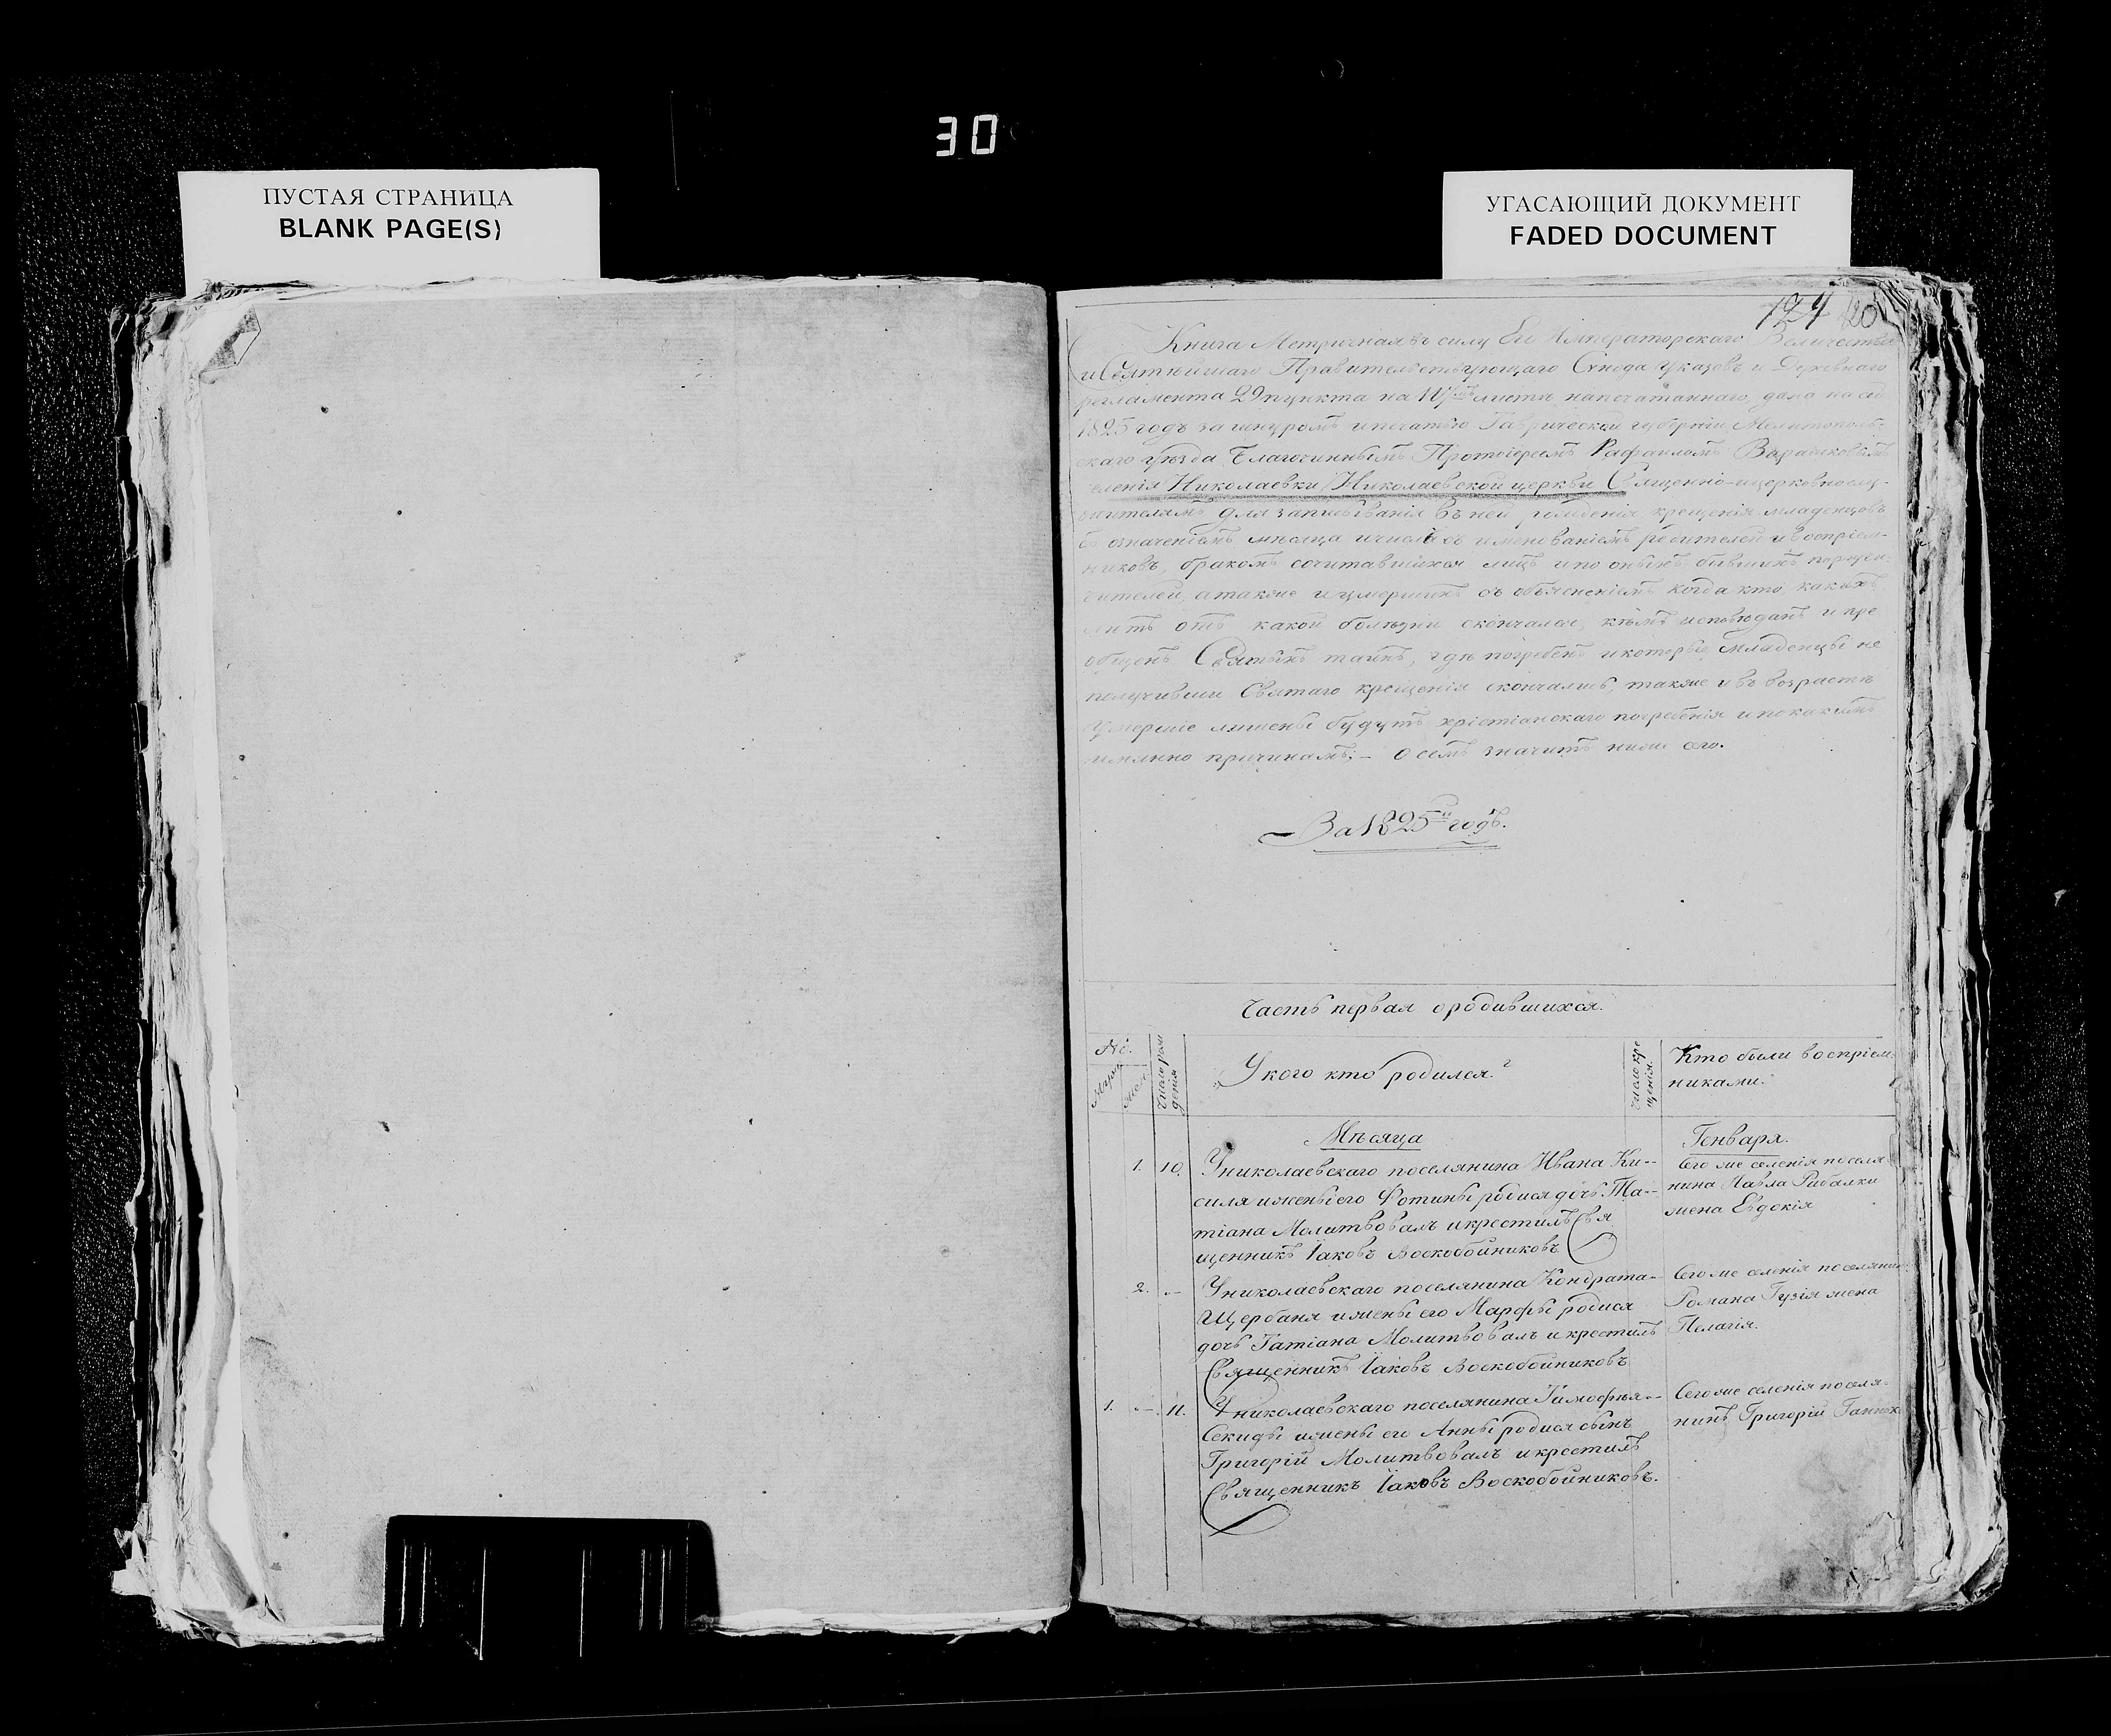 30
ПУСТАЯ СТРАНИЦА
BLANK PAGE(S)
УГАСАЮЩИЙ ДОКУМЕНТ
FADED DOCUMENT
124 120
Книга Метричная въ силу Ея Императорскаго Величества
и Святѣйшаго Правительствующаго Сѵнода указовъ и Духовнаго
регламента 29 пункта на листѣ напечатаннаго, дана на сей
1825 годъ за шнуромъ и печатью Таврической губерніи Мелитополь-
скаго уѣзда Благочиннымъ Протоіереемъ Рафаиломъ
селенія Николаевки Николаевской церкви Священно-церковнослу-
жителямъ для записыванія въ ней рожденія крещенія младенцовъ
съ означеніемъ мѣсяца и числа съ именованіемъ родителей и воспріем-
никовъ, бракомъ сочитавшихся лицъ и по онымъ бывшихъ поручи-
телей, а также и умершихъ съ объясненіемъ когда кто какихъ
лѣтъ отъ какой болѣзни скончался, кѣмъ исповѣданъ и прі
общенъ Святыхъ таинъ, гдѣ погребенъ и которые младенцы не
получивши Святаго крещенія скончались, также и въ возрастѣ
умершіе лишены будутъ христіанскаго погребенія и по какимъ
имянно причинамъ; – о семъ значитъ ниже сего.
За 1825й годъ.
Часть первая о родившихся.
№.
Муж. Жен.
Число рож
денія
У кого кто родился?
Число кре
щенія.
Кто были воспріем-
никами.
Мѣсяца
Генваря.
1. 10. У николаевскаго поселянина Ивана Ки-
силя и жены его Фотины родися дочь Та-
тіана Молитвовалъ и крестилъ Свя
щенникъ Іаковъ Воскобойниковъ
Сего же селенія поселя
нина Павла Рибалки
жена Евдокія
2. – У николаевскаго поселянина Кондрата
Щербаня и жены его Марфы родися
дочь Татіана Молитвовалъ и крестилъ
Священникъ Іаковъ Воскобойниковъ
Сего же селенія поселянина
Романа Гузія жена
Пелагія.
1. – 11. У николаевскаго поселянина Тимофѣя
Секиды и жены его Анны родися сынъ
Григорій Молитвовалъ и крестилъ
Священникъ Іаковъ Воскобойниковъ.
Сего же селенія поселя-
нинъ Григорій